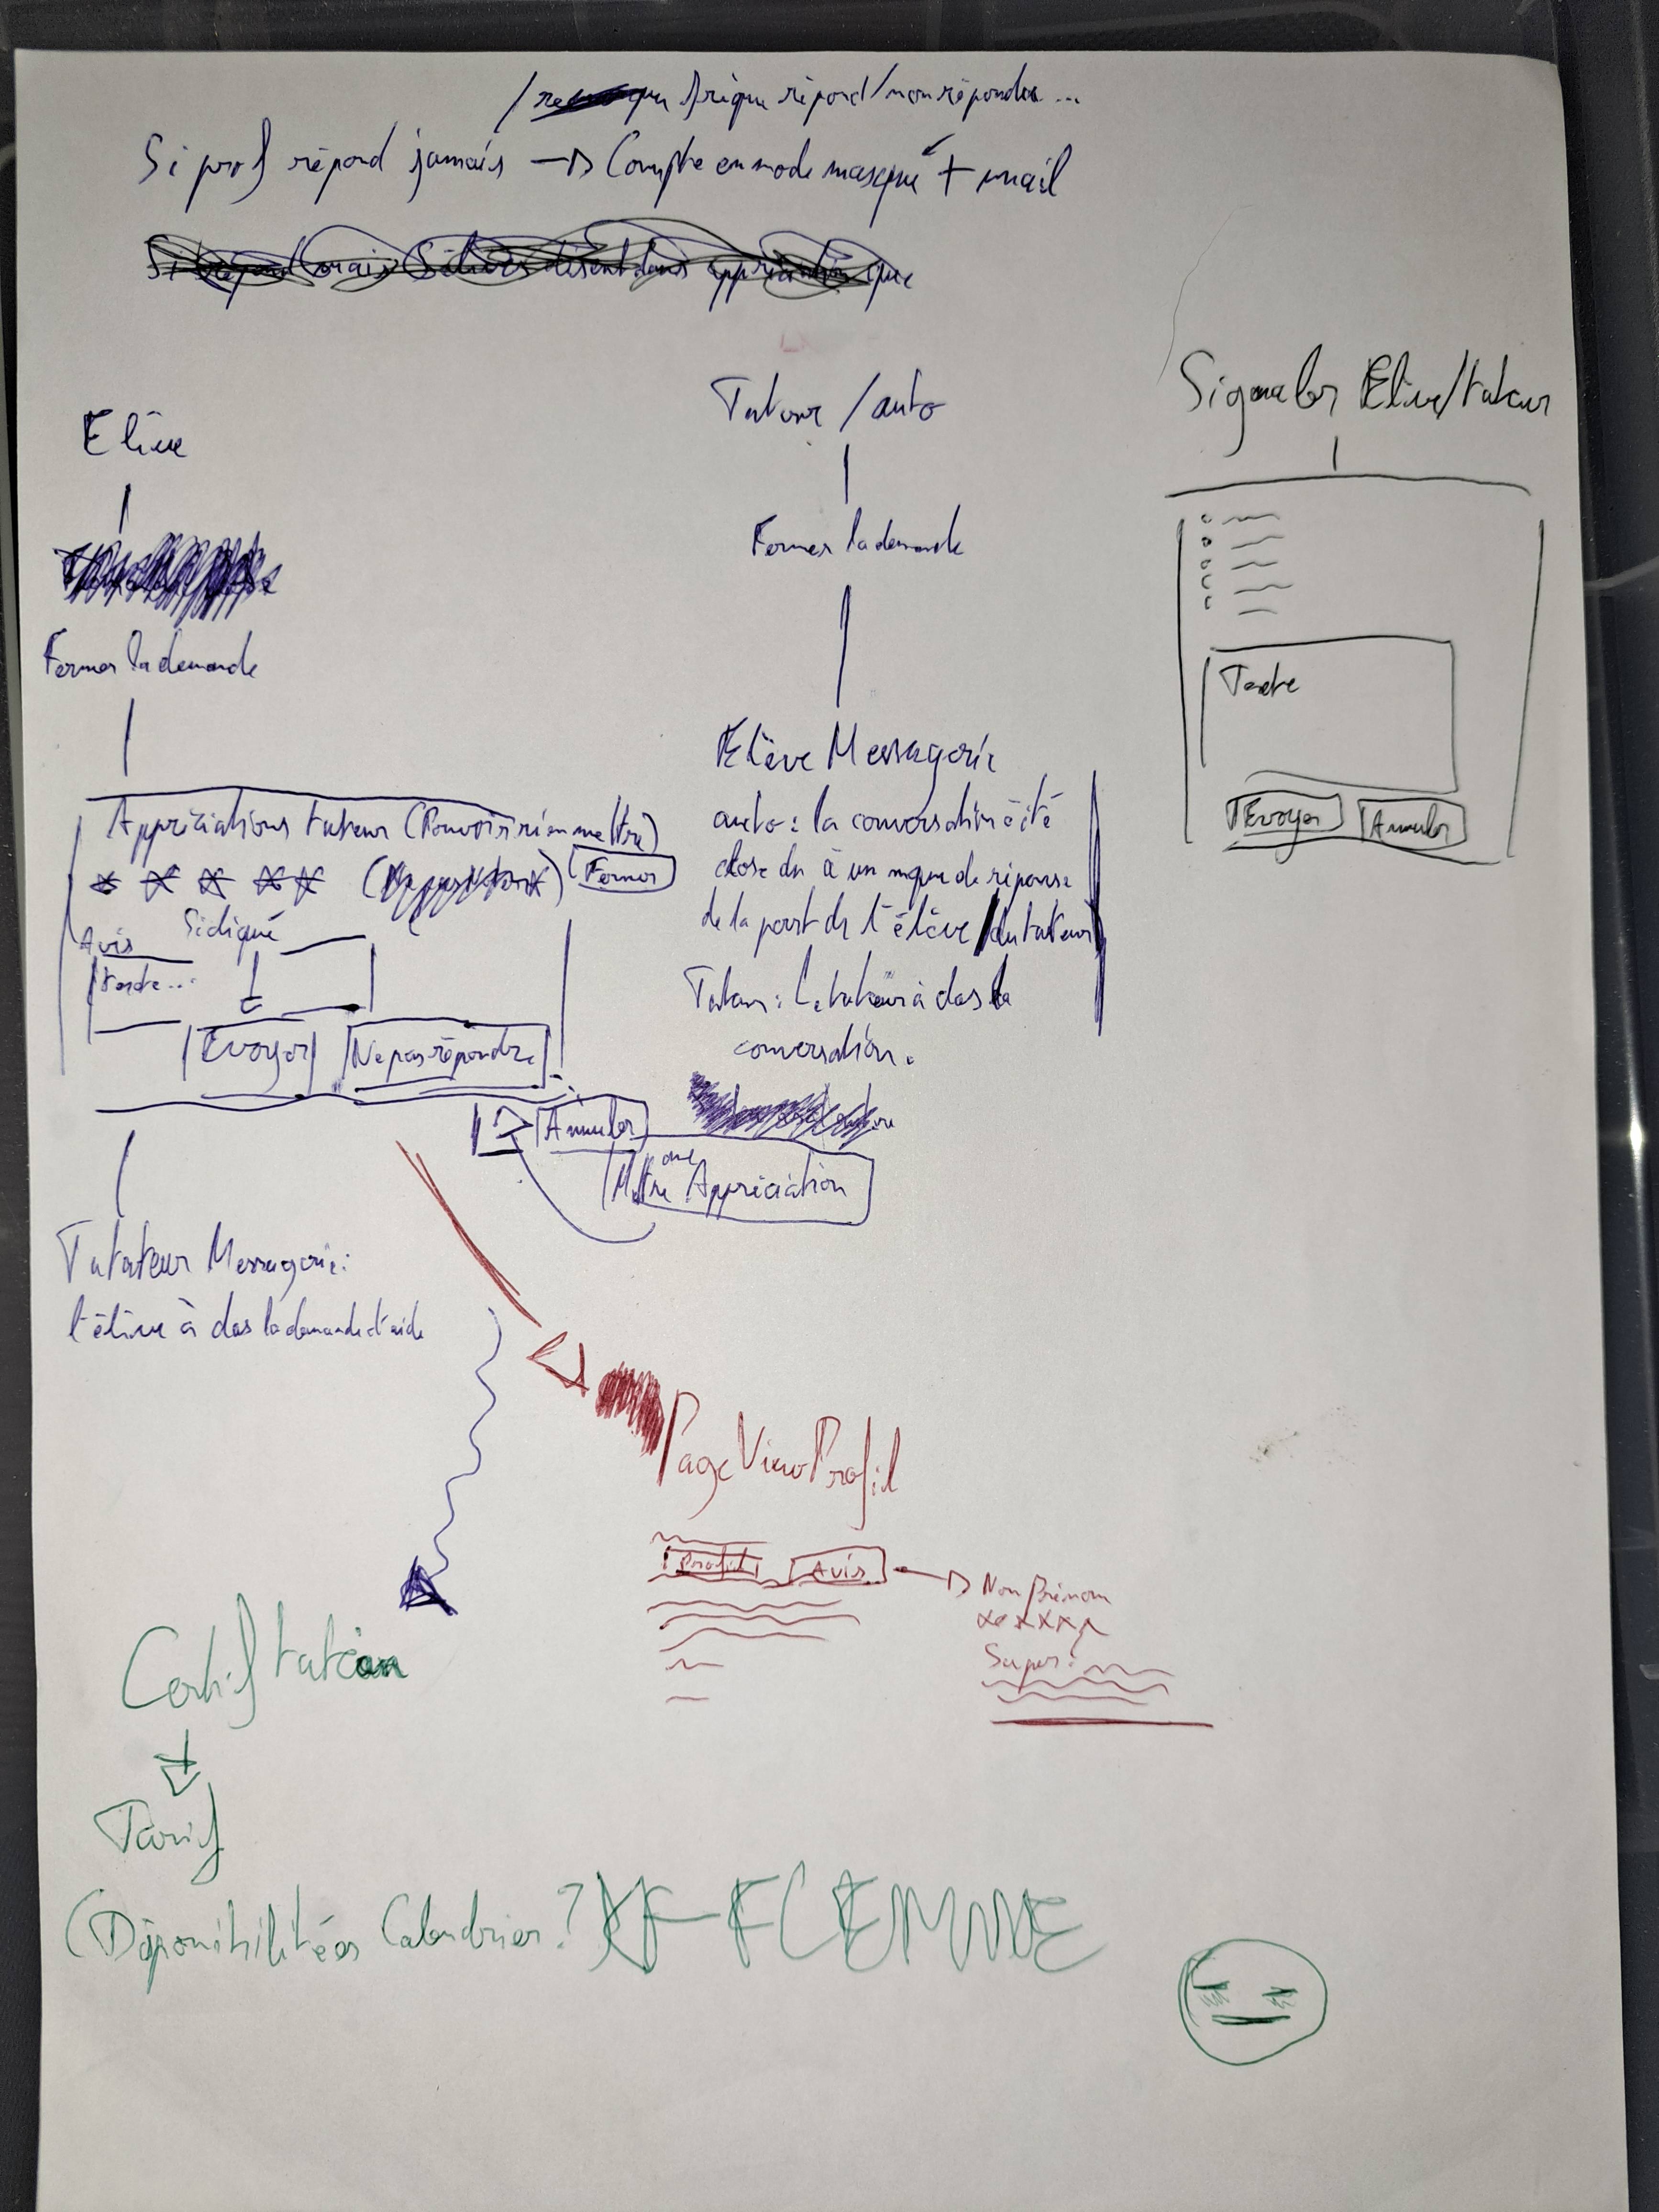 répond/non répondu...
Si prof répond jamais → Compte en mode masqué + mail
Elève
Fermer la demande
Appréciations tuteur (Pouvoir rien mettre)
Fermer
Si cliqué
Avis
texte...
Evoyer
Ne pas répondre
Annuler
Mettre une Appréciation
Tutateur Messagerie:
l'élève à clos la demande d'aide
Tuteur /auto
Fermer la demande
Elève Messagerie
auto: la conversation à été
close du à un mque de réponse
de la part de l'élève/du tuteur
Tuteur: Le tuteur à clos la
conversation.
Signaler Elève/tuteur
Texte
Evoyer
Annuler
Page View Profil
Profil
Avis
Nom Prénom
Super:
Certif
Tarif
(Diponibilitées Calendrier?
FLEMME